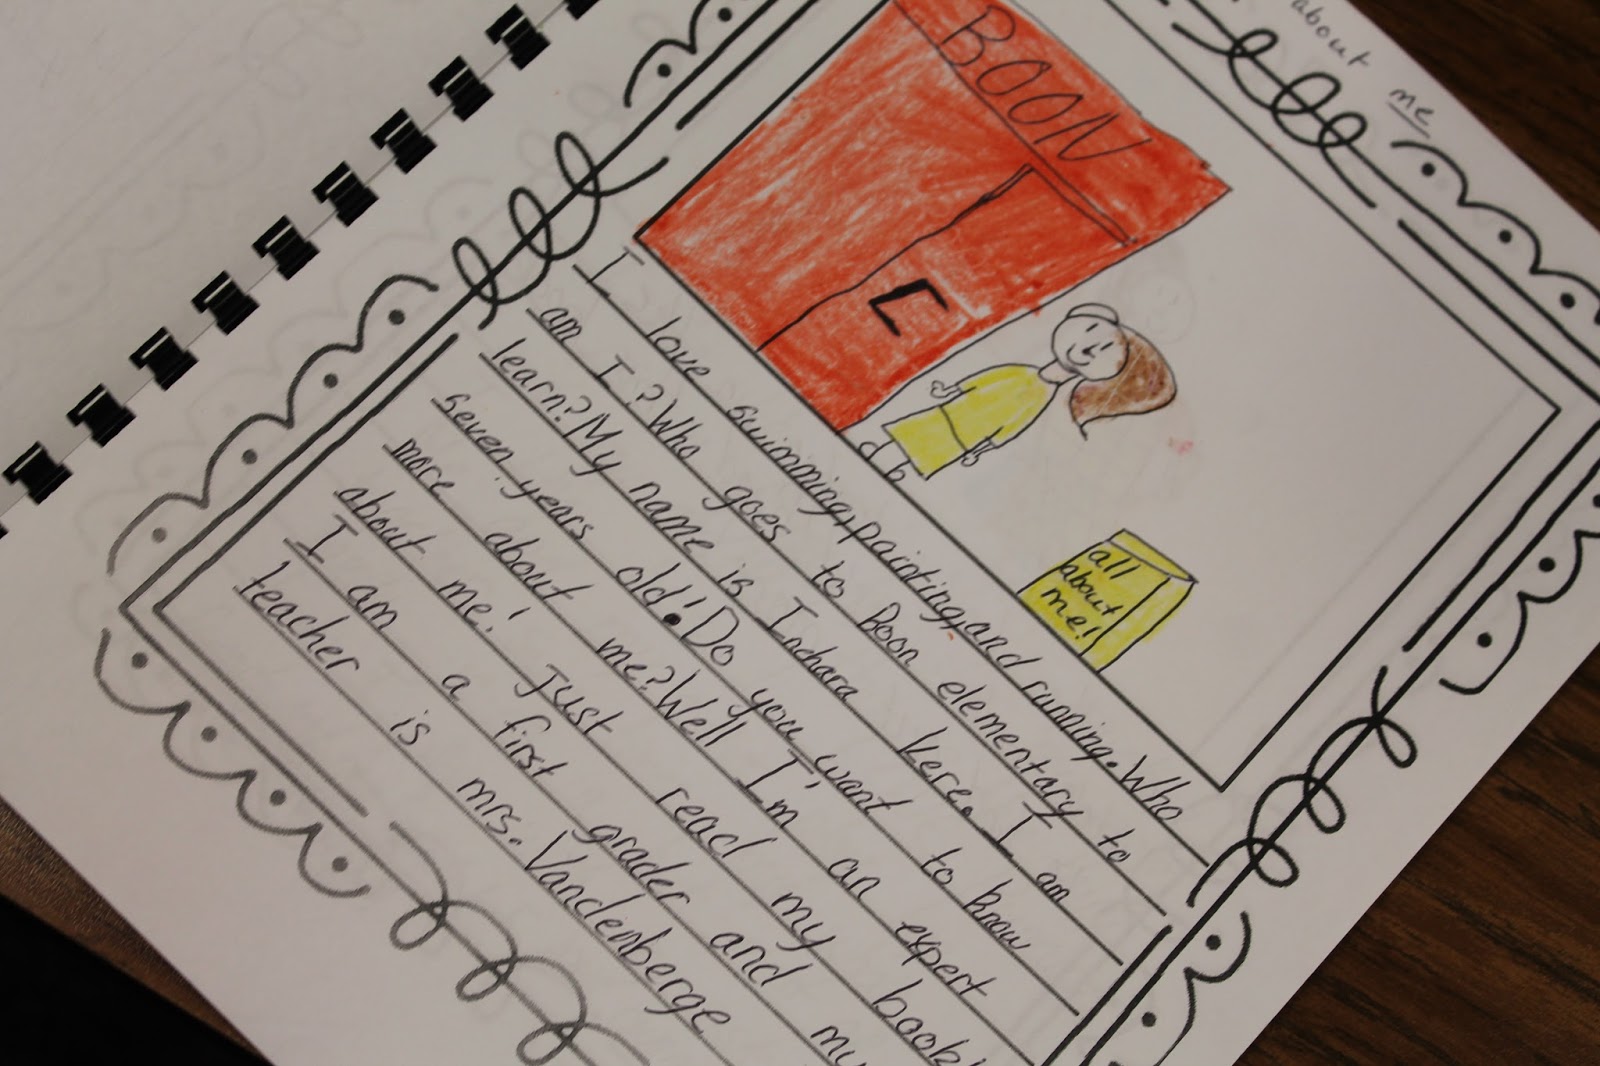 about me
BOON
all
about
me!
I love swimming, painting, and running. Who
am I? Who goes to Boon elementary to
learn? My name is Inchara Kere. I am
seven years old! Do you want to know
more about me? Well I'm an expert
about me! Just read my book!
I am a first grader and my
teacher is mrs. Vandenberge